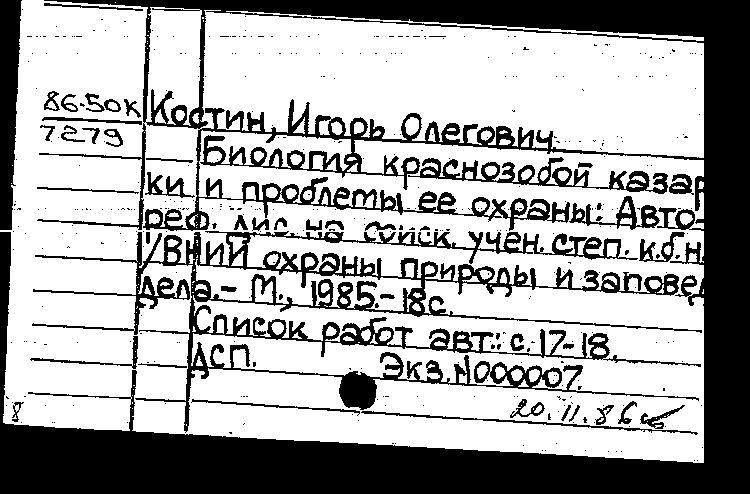 86-50К
7279
Костин, Игорь Олегович.
Биология краснозобой казар
ки и проблемы ее охраны: Авто-
реф. дис. на соиск. учен. степ. к.б.н.
/ВНИИ охраны природы и запове
дела.- М., 1985.- 18с.
Список работ авт.: с. 17-18.
ДСП. Экз.N000007.
20.11.86
8